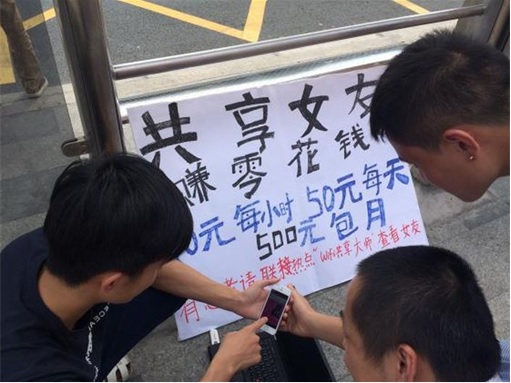 共享女友
赚零花钱
0元 每小时 50元每天
500元包月
有 者请 联接热点"WiFi共享大师 查看女友